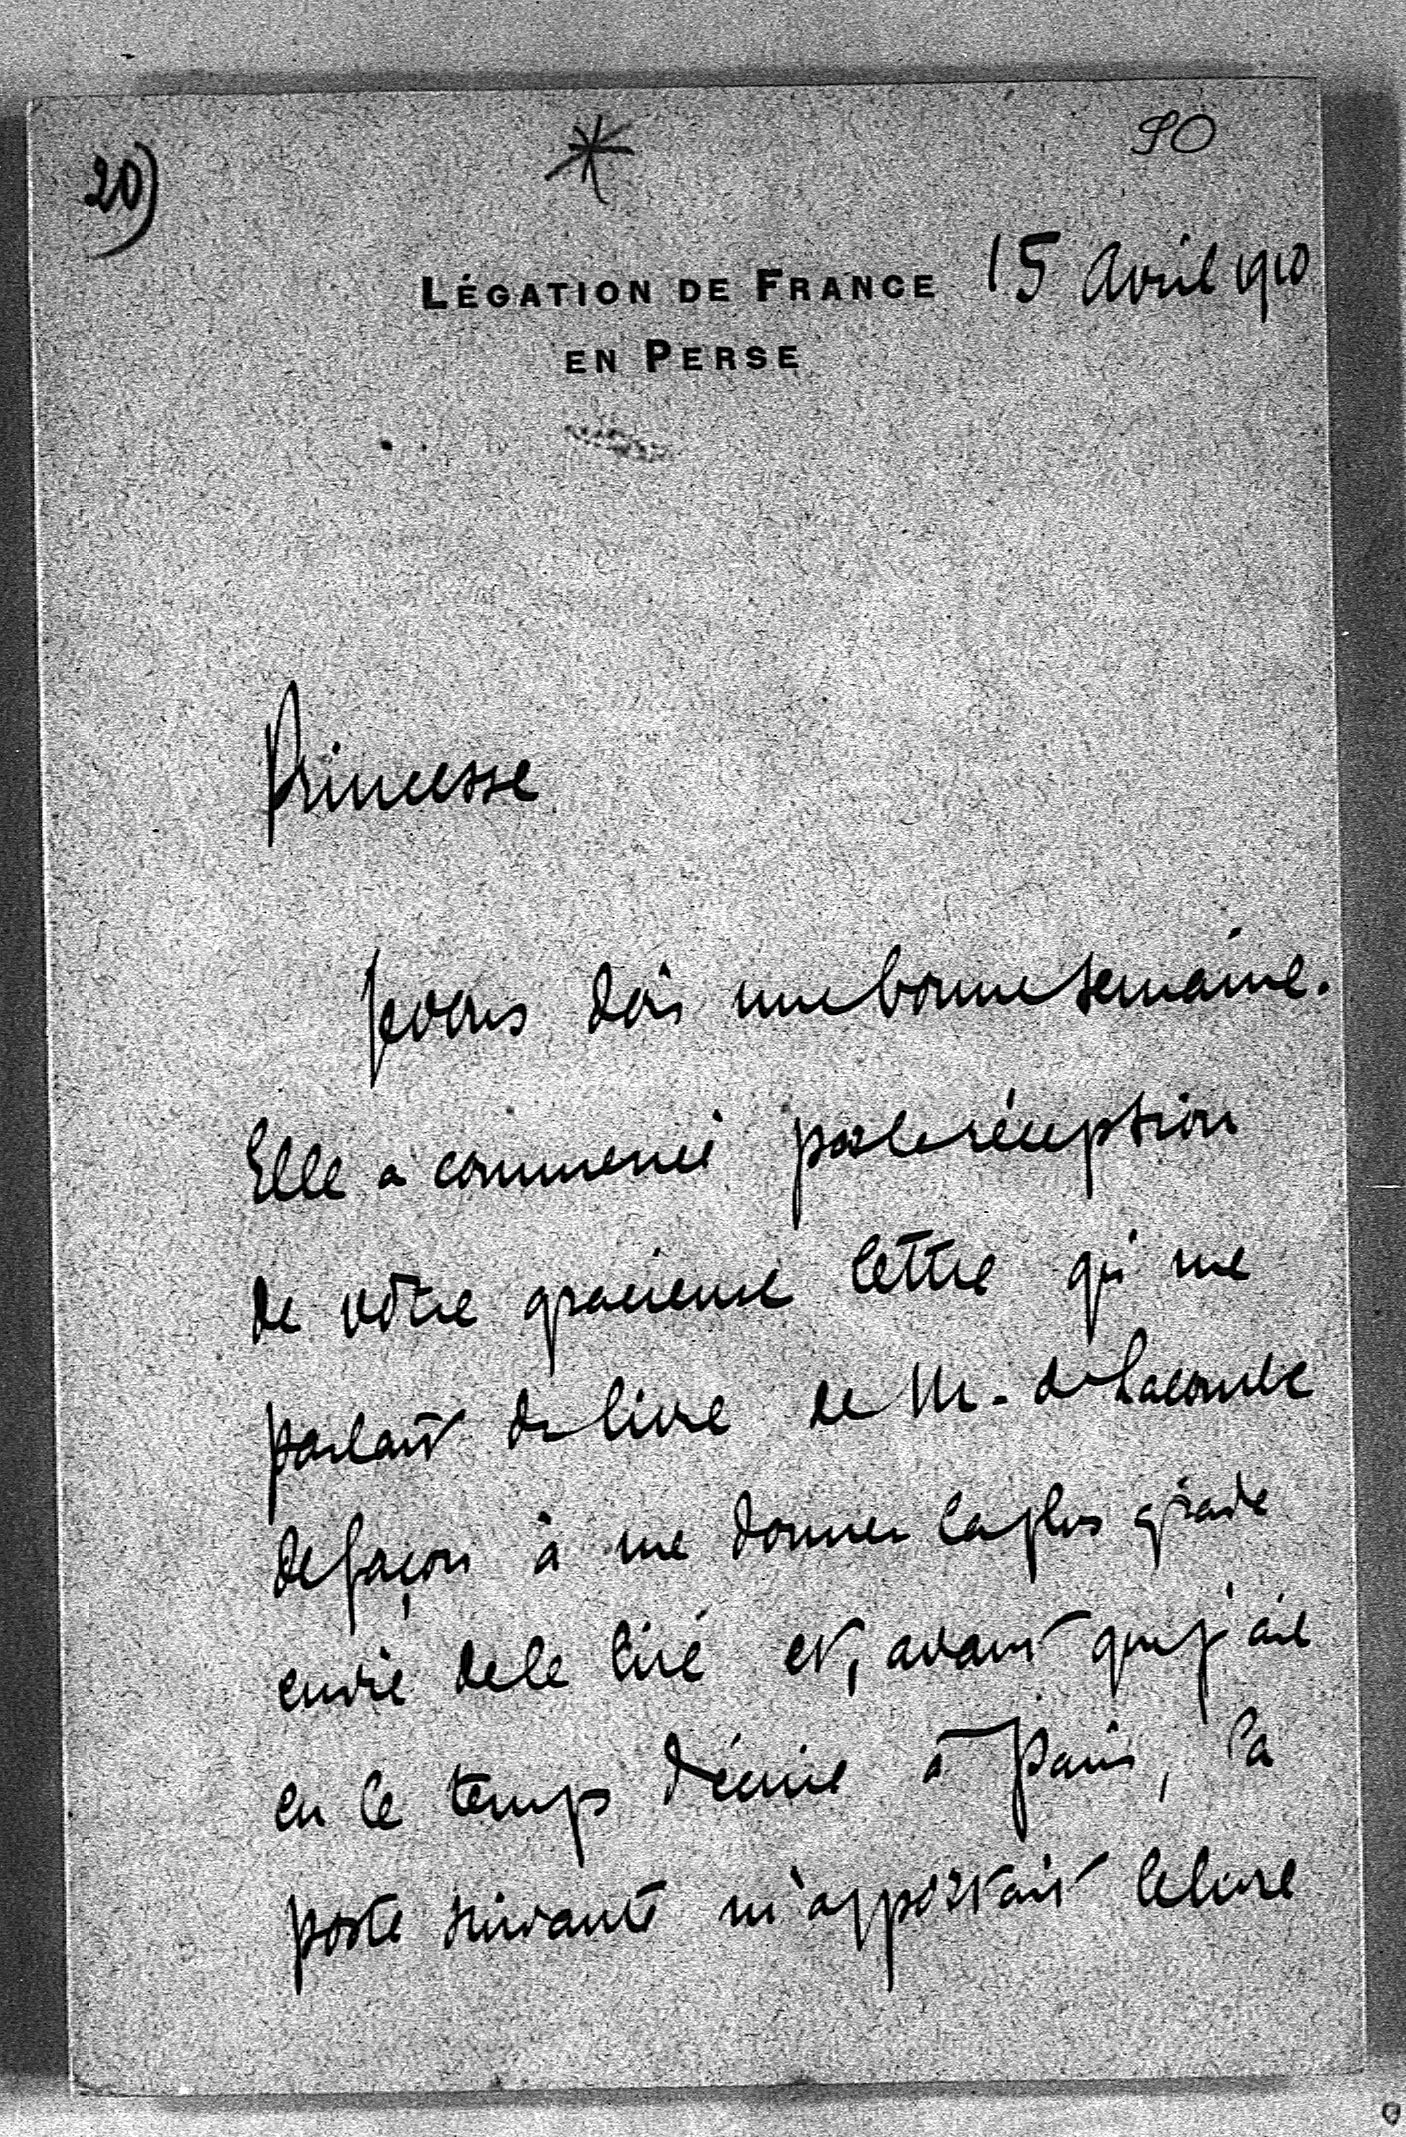 20)
90
LÉGATION DE FRANCE 15 Avril 1910
EN PERSE
Princesse
Je vous dois une bonne semaine.
Elle a commencé par la réception
de votre gracieuse lettre qui me
parlait du livre de M. de Lacombe
de façon à me donner la plus grande
envie de le lire et, avant que j'aie
eu le temps d'écrire à Paris, la
poste suivante m'apportait le livre